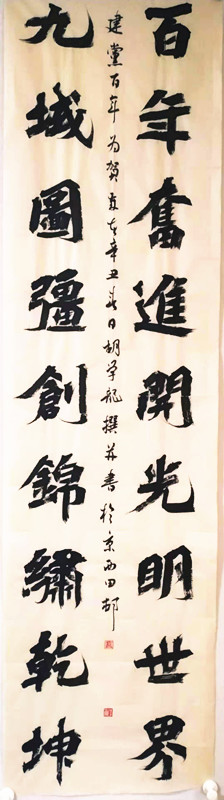 百年奮進開光明世界
九域圖彊創錦繡乾坤
建黨百年為賀歲在辛丑春日胡學龍撰并書於京西田邨